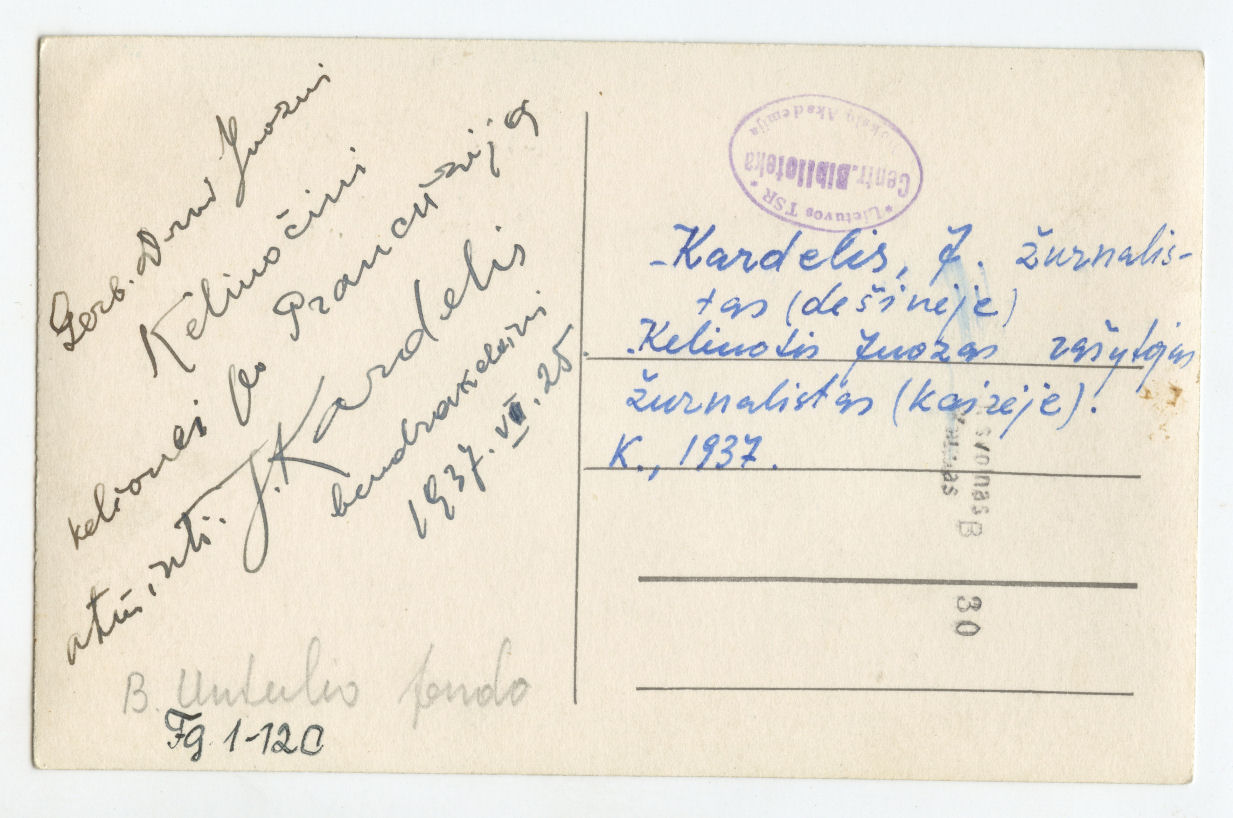 Gerb. Drui Juozui
Keliuočiui
kelionei po Prancūziją
atminti. J. Kardelis
bendrakeleivi
1937.VII.25.
B. Untulio fondo
Fg. 1-120
* Lietuvos TSR *
Centr. Biblioteka
Mokslų Akademija
Kardelis, J. žurnalis-
tas (dešinėje)
Keliuotis Juozas rašytojas
žurnalistas (kairėje).
K., 1937.
30